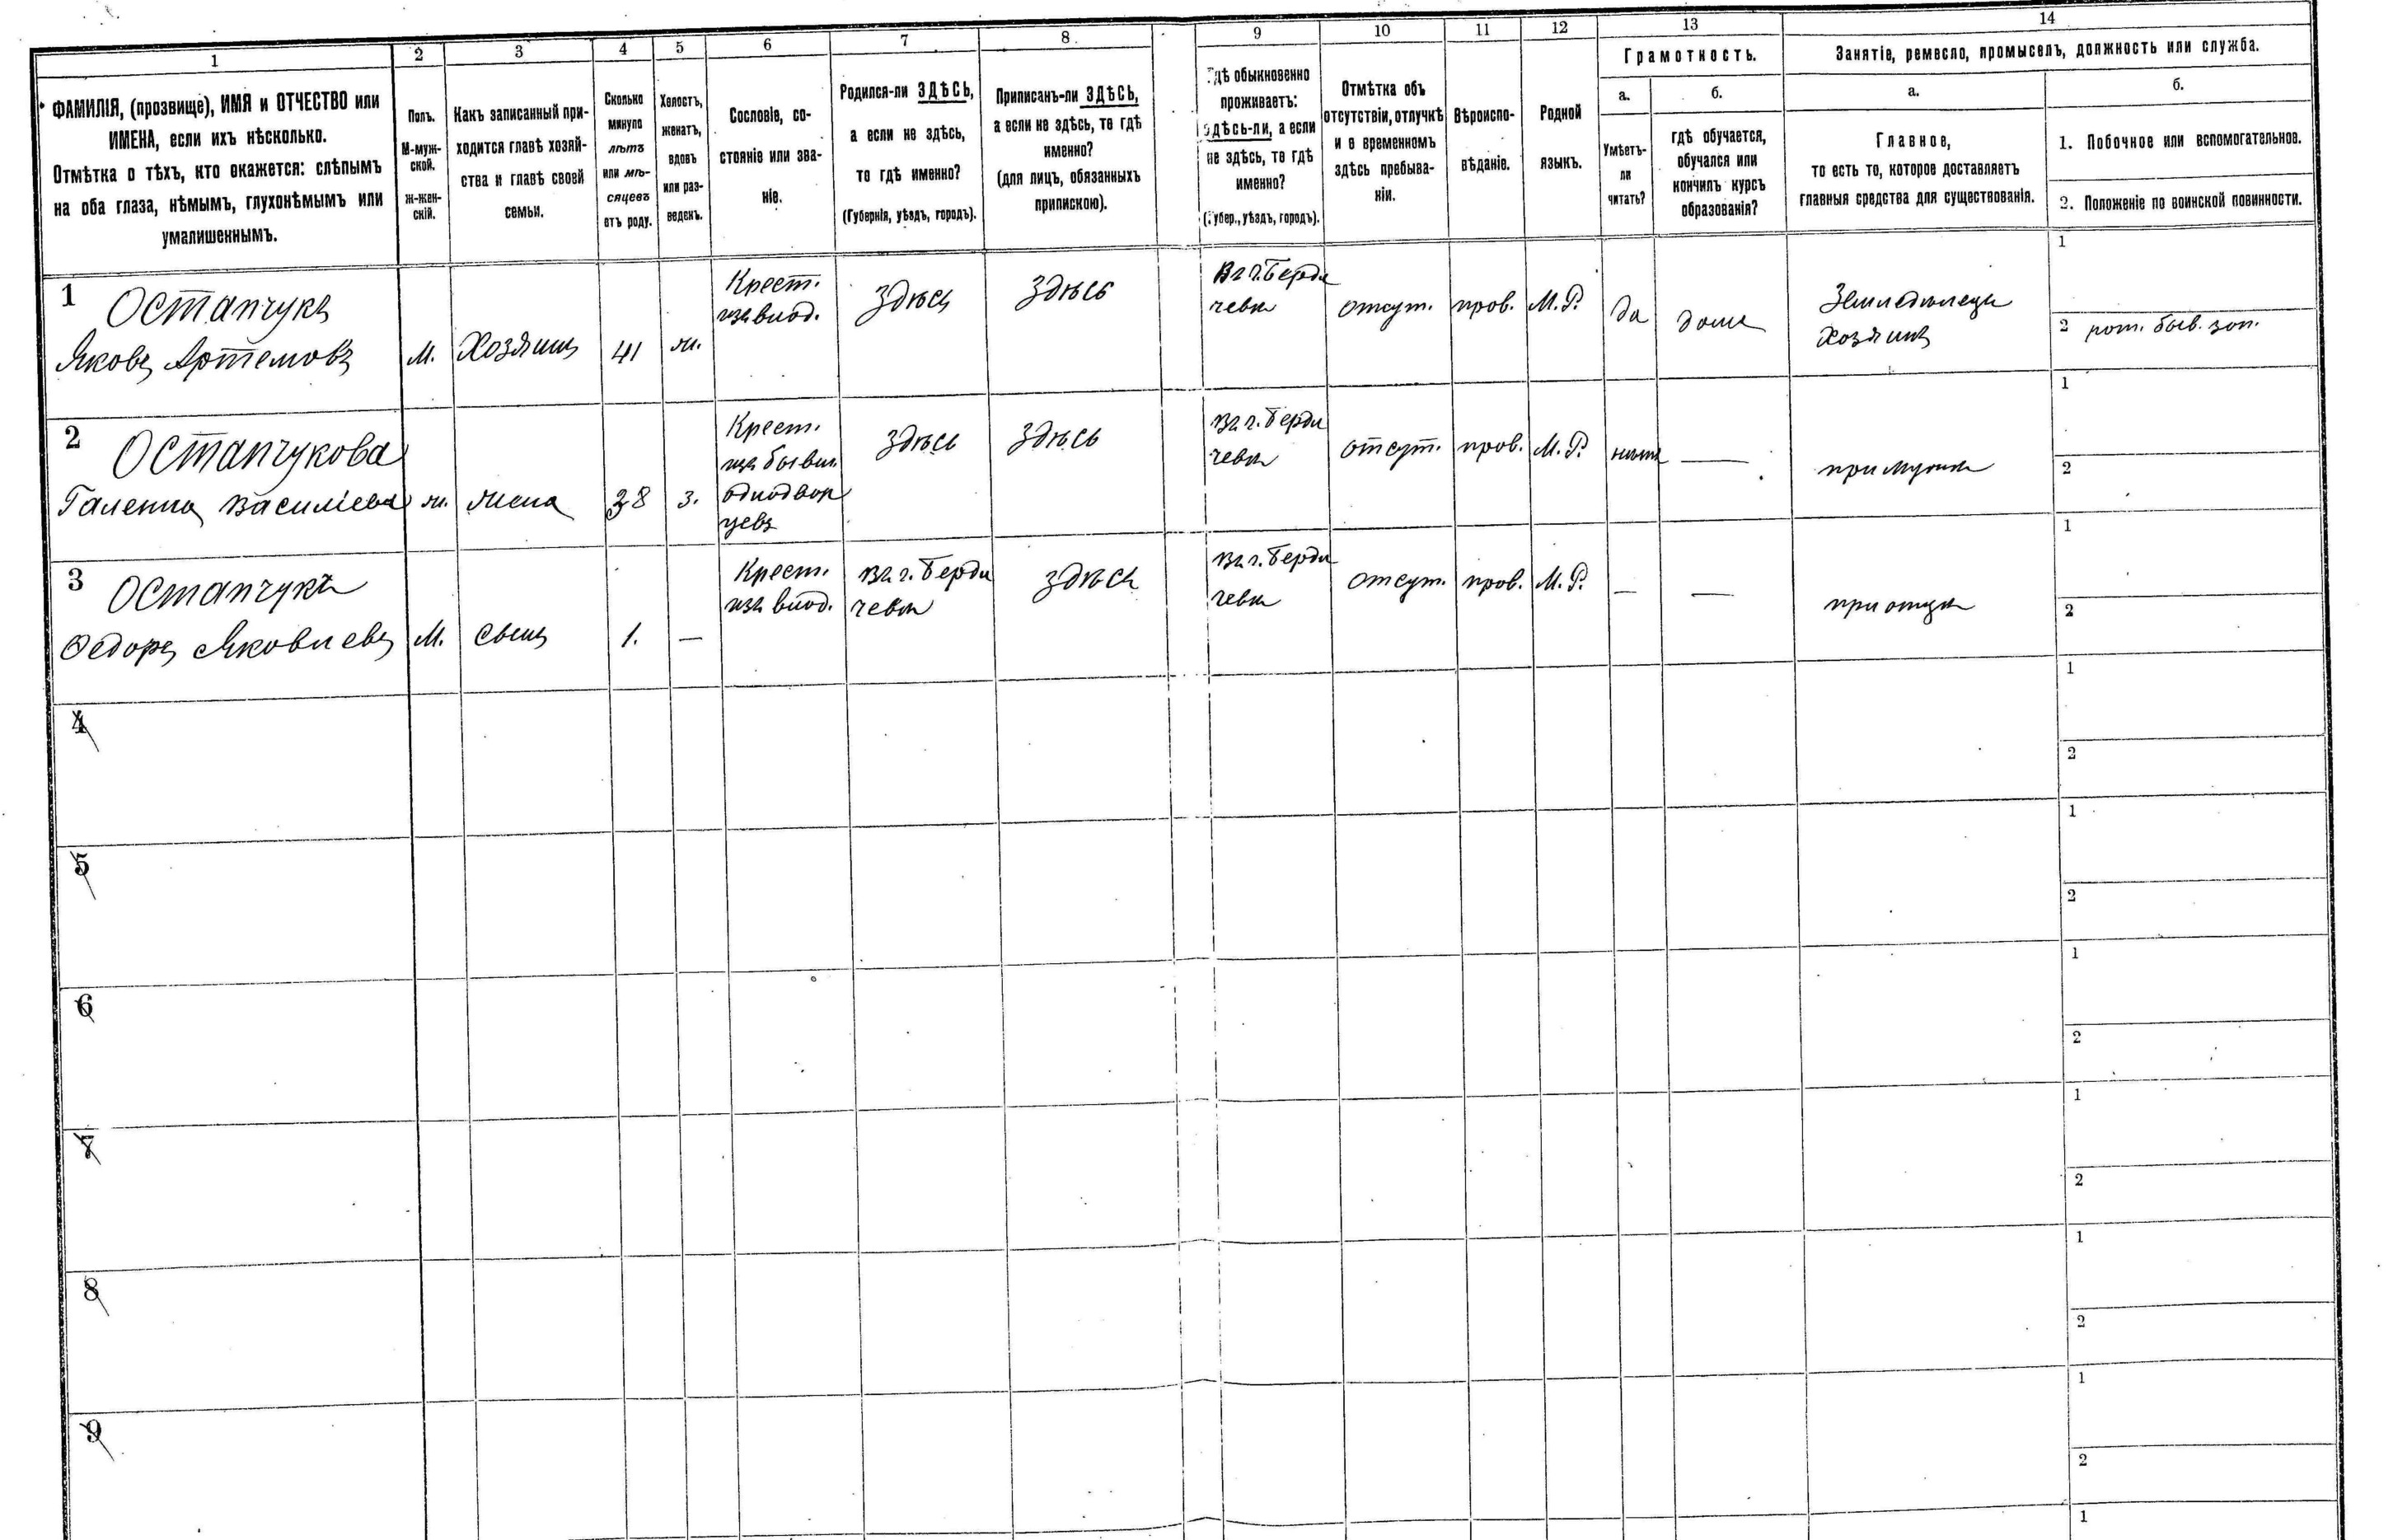 1
2
3
4
5
6
7
8
9
10
11
12
13
14
ФАМИЛІЯ, (прозвище), ИМЯ и ОТЧЕСТВО или
ИМЕНА, если ихъ нѣсколько.
Отмѣтка о тѣхъ, кто окажется: слѣпымъ
на оба глаза, нѣмымъ, глухонѣмымъ или
умалишеннымъ.
Полъ.
М-муж-
ской.
Ж-жен-
скій.
Какъ записанный при-
ходится главѣ хозяй-
ства и главѣ своей
семьи.
Сколько
минуло
лѣтъ
или мѣ-
сяцевъ
отъ роду.
Холостъ,
женатъ,
вдовъ
или раз-
веденъ.
Сословіе, со-
стояніе или зва-
ніе.
Родился-ли ЗДѢСЬ,
а если не здѣсь,
то гдѣ именно?
(Губернія, уѣздъ, городъ).
Приписанъ-ли ЗДѢСЬ,
а если не здѣсь, то гдѣ
именно?
(для лицъ, обязанныхъ
припискою).
Гдѣ обыкновенно
проживаетъ:
здѣсь-ли, а если
не здѣсь, то гдѣ
именно?
(Губер., уѣздъ, городъ).
Отмѣтка объ
отсутствіи, отлучкѣ
и о временномъ
здѣсь пребыва-
ніи.
Вѣроиспо-
вѣданіе.
Родной
языкъ.
Грамотность.
а.
Умѣетъ-
ли
читать?
б.
гдѣ обучается,
обучался или
кончилъ курсъ
образованія?
Занятіе, ремесло, промыселъ, должность или служба.
а.
Главное,
то есть то, которое доставляетъ
главныя средства для существованія.
б.
1. Побочное или вспомогательное.
2. Положеніе по воинской повинности.
1
Остапчукъ
Яковъ Артемовъ
М.
Хозяинъ
41
ж.
Крест.
изъ влад.
здѣсь
здѣсь
Въ г. Берди
чевѣ
отсут.
пров.
М. Р.
да
дома
Земледѣлецъ
хозяинъ
1
2
2
Остапчукова
Василіева
ж.
жена
38
з.
Крест.
изъ бывш.
однодвор
цевъ
здѣсь
здѣсь
Въ г. Берди
чевѣ
отсут.
пров.
М. Р.
нѣтъ
—
при мужѣ
1
2
3
Остапчукъ
Ѳедоръ Яковлевъ
М.
сынъ
1.
—
Крест.
изъ влад.
Въ г. Берди
чевѣ
здѣсь
Въ г. Берди
чевѣ
отсут.
пров.
М. Р.
—
—
при отцѣ
1
2
4
1
2
5
1
2
6
1
2
7
1
2
8
1
2
9
1
2
1